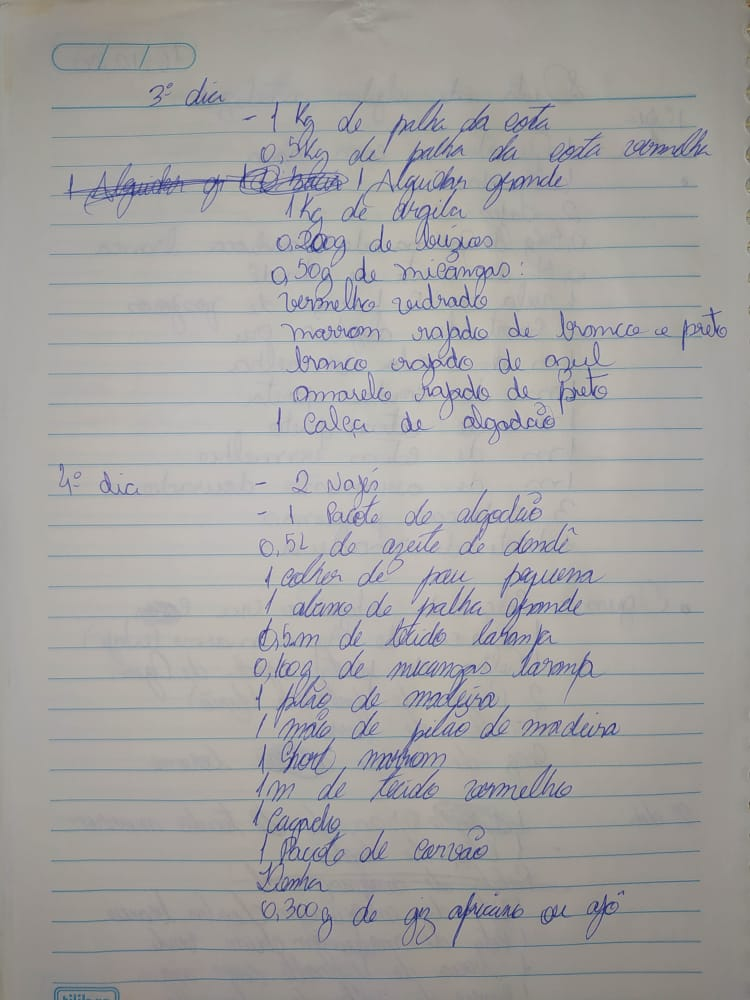 3º dia
- 1 Kg de palha da costa
0,5Kg de palha da costa vermelha
1 Alguidar 1 Alguidar grande
1Kg de argila
0,200g de búzios
0,50g de miçangas:
vermelho vidrado
marrom rajado de branco e preto
branco rajado de azul
amarelo rajado de preto
1 Calça de algodão
4º dia - 2 Najés
- 1 Pacote de algodão
0,5L de azeite de dendê
1 colher de pau pequena
1 abano de palha grande
0,5m de tecido laranja
0,100g de miçangas laranja
1 pilão de madeira
1 mão de pilão de madeira
1 Short marrom
1m de tecido vermelho
1
1 Pacote de carvão
0,300g de giz africano ou